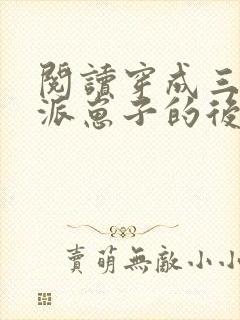 閱讀穿成三
派崽子的後
賣萌無敵小小